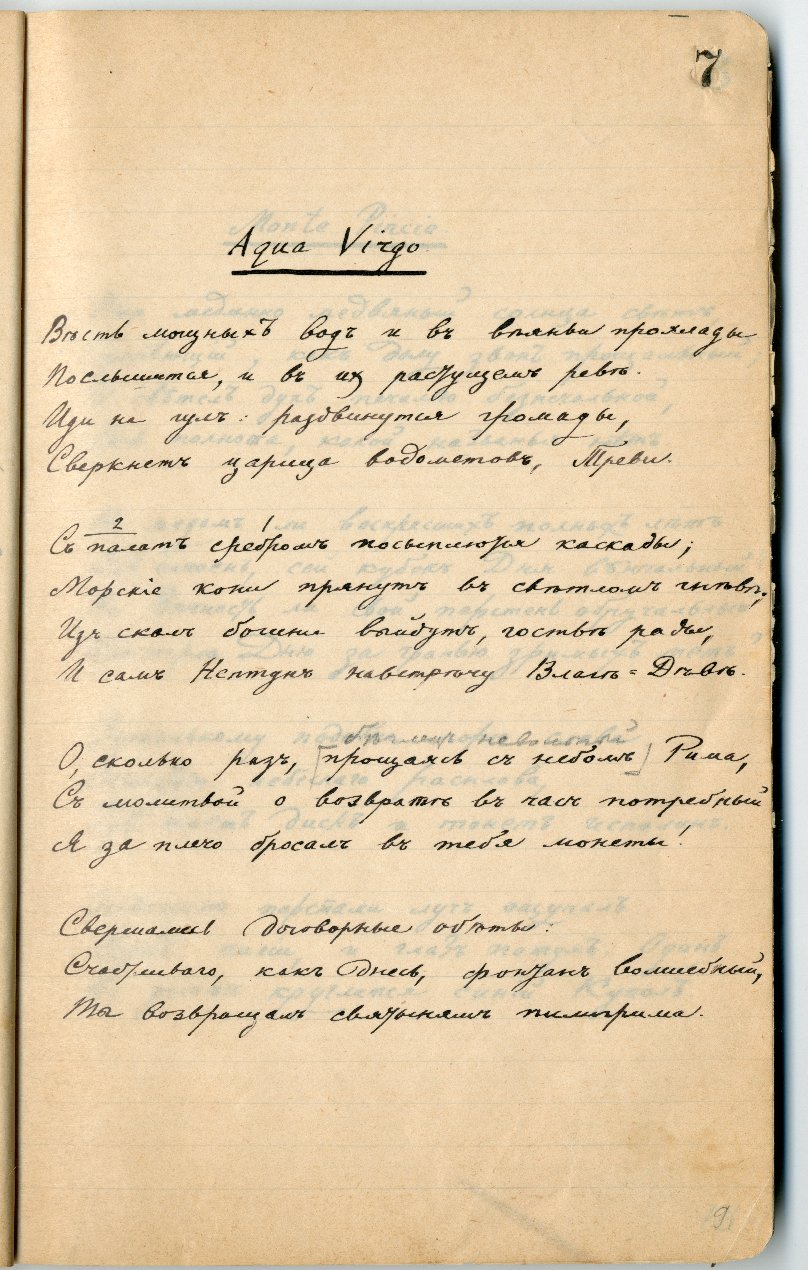 7
Aqua Virgo
Вѣсть мощныхъ водъ и въ вѣяньи прохлады
Послышится, и въ их растущемъ ревѣ.
Иди на гулъ: раздвинутся громады,
Сверкнетъ царица водометовъ, Треви.
2 1
Съ палатъ сребромъ посыплются каскады;
Морскіе кони прянутъ въ свѣтломъ гнѣвѣ;
Изъ скалъ богини выйдутъ, гостьѣ рады,
И самъ Нептунъ навстрѣчу Влагѣ-Дѣвѣ.
бѣглецъ невольный
О, сколько разъ, [прощаясь съ небомъ] Рима,
Съ молитвой о возвратѣ въ часъ потребный
Я за плечо бросалъ въ тебя монеты!
Свершались договорные обѣты:
Счастливаго, какъ днесь, фонтанъ волшебный,
Ты возвращалъ святынямъ пилигрима.
9